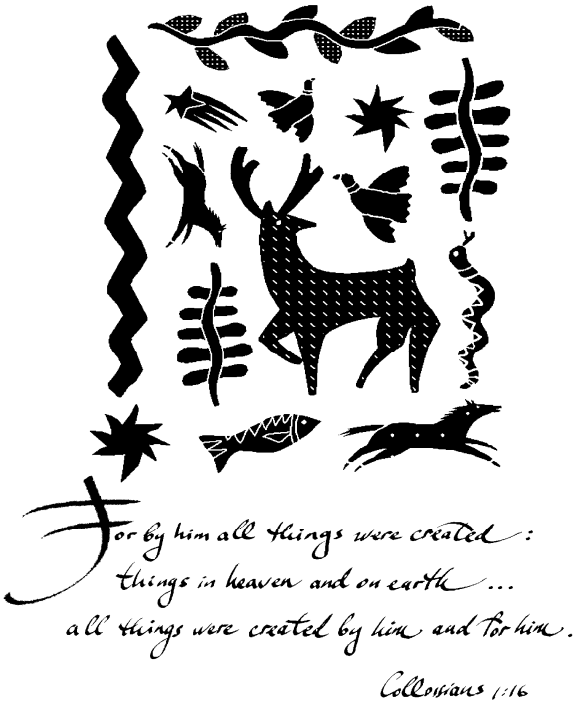 For by him all things were created :
things in heaven and on earth ...
all things were created by him and for him.
Collossians 1:16